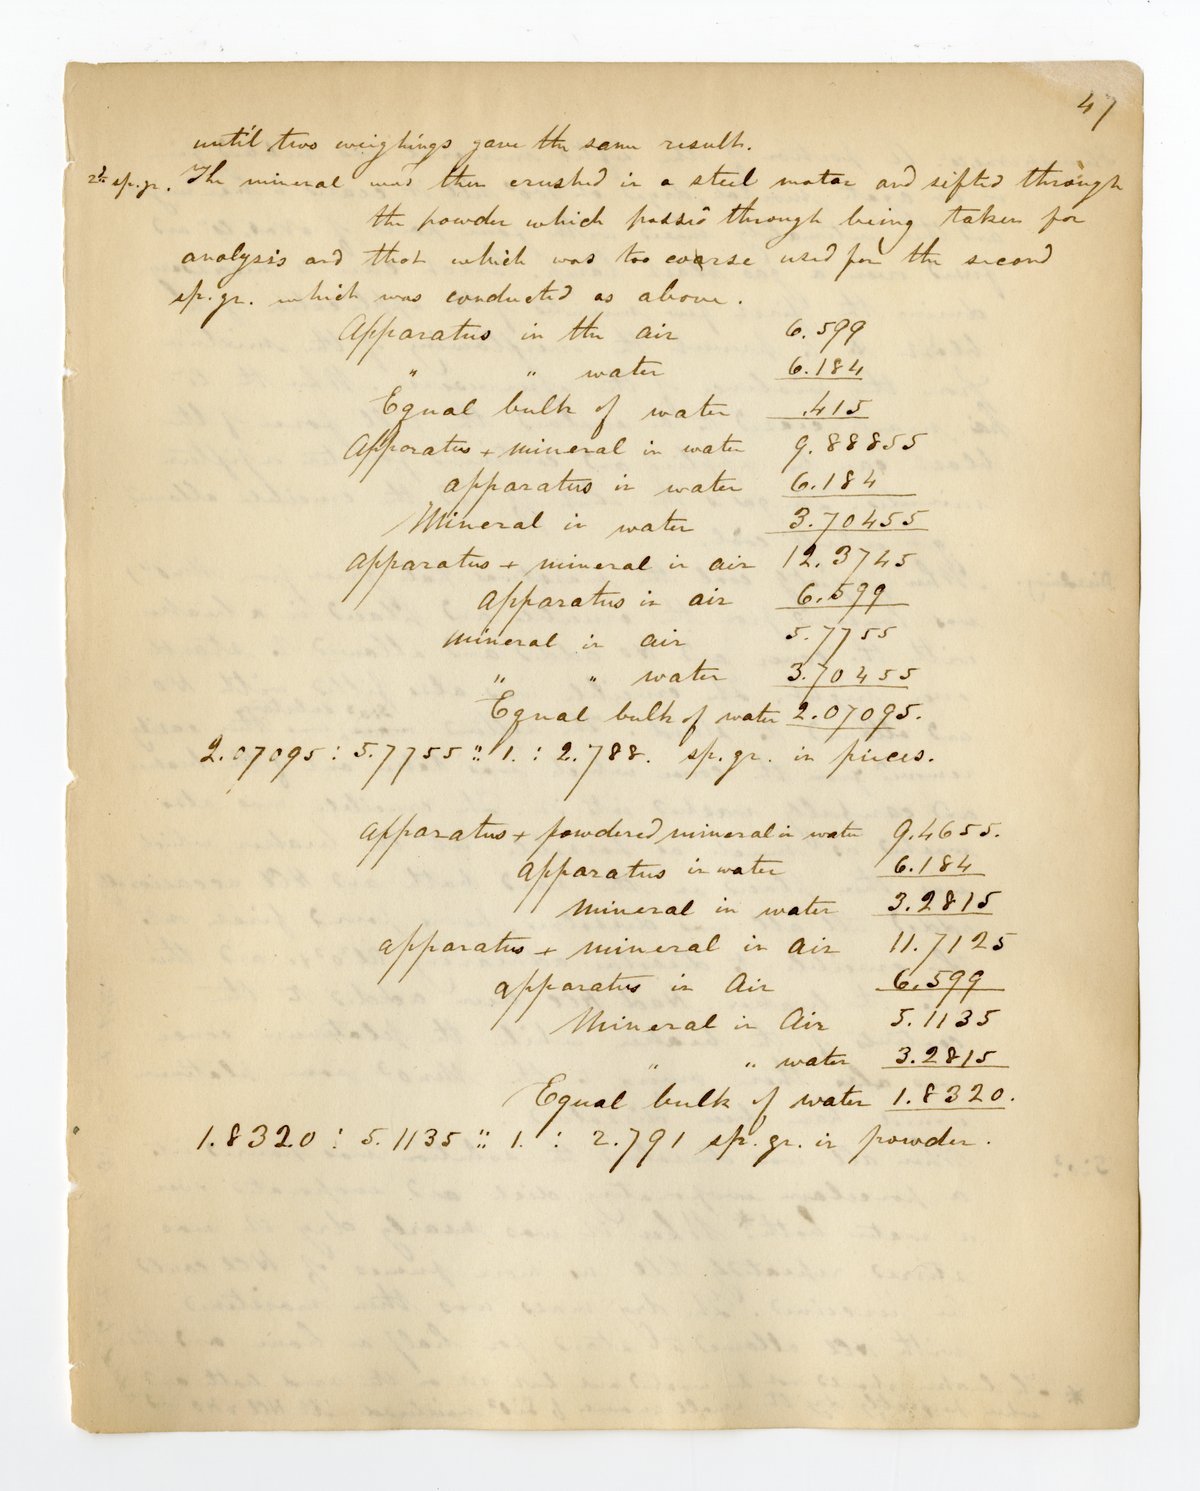 47
until two weighings gave the same result.
2d sp.gr. The mineral was then crushed in a steel motar and sifted through
the powder which passed through being taken for
analysis and that which was too coarse used for the second
sp.gr. which was conducted as above.
Apparatus in the air 6.599
" " water 6.184
Equal bulk of water .415
Apparatus + mineral in water 9.88855
apparatus in water 6.184
Mineral in water 3.70455
apparatus + mineral in air 12.3745
apparatus in air 6.599
mineral in air 5.7755
" " water 3.70455
Equal bulk of water 2.07095.
2.07095 : 5.7755 :: 1. : 2.788. sp.gr. in pieces.
apparatus + powdered mineral in water 9.4655.
apparatus in water 6.184
mineral in water 3.2815
apparatus + mineral in air 11.7125
apparatus in Air 6.599
Mineral in Air 5.1135
" " water 3.2815
Equal bulk of water 1.8320.
1.8320 : 5.1135 :: 1. : 2.791 sp.gr. in powder.